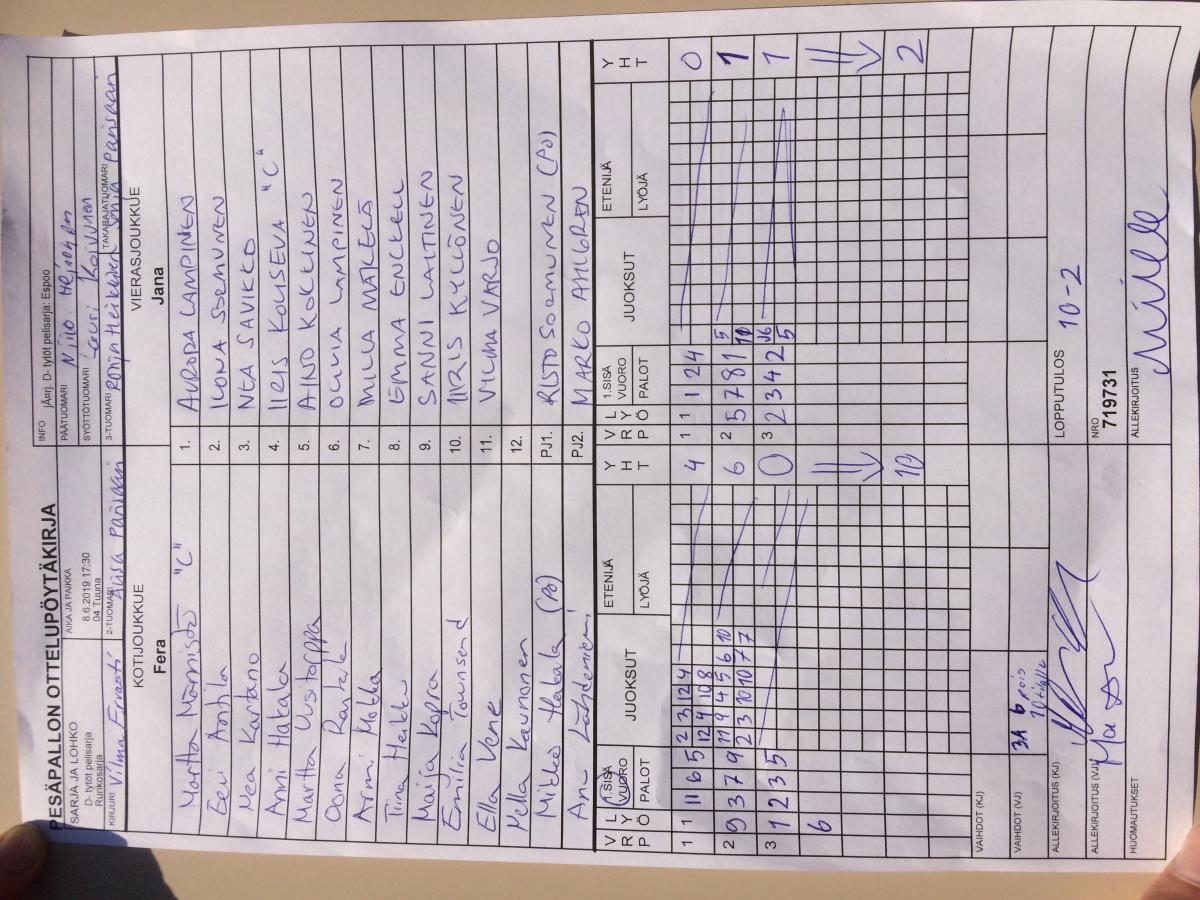 PESÄPALLON OTTELUPÖYTÄKIRJA
SARJA JA LOHKO
D- tytöt pelisarja
Runkosarja
AIKA JA PAIKKA
8.6.2019 17:30
04 Tuuna
INFO jÄrrj. D- tytöt pelisarja: Espoo
PÄÄTUOMARI Niilo
SYÖTTÖTUOMARI Koivunen
KIRJURI Vilma
2-TUOMARI Aliisa
3-TUOMARI Ronja Heikkinen
TAKARAJATUOMARI
KOTIJOUKKUE
Fera
VIERASJOUKKUE
Jana
Martta Männistö "C" 1. AURORA LAMPINEN
Eevi Anttila 2. ILONA SORMUNEN
Nea Kartano 3. NEA SAVIKKO
Anni Hakala 4. IIRIS KOUSEVA "C"
Martta Uusitorppa 5. AINO KOKKINEN
Oona Rantala 6. OLIVIA LAMPINEN
Armi Mokka 7. MILLA MÄKELÄ
Tiina Heikku 8. EMMA ENCKELL
Maija Kopra 9. SANNI LAITINEN
Emilia Townsend 10. IIRIS KYLLÖNEN
Ella Vene 11. VILMA VARJO
Pella Kaunonen 12.
Mikko Hakala (PJ) PJ1. RISTO SORMUNEN (PJ)
Anu Lähdeniemi PJ2. MARKO AHLGREN
V R P L Y Ö 1.SISÄ VUORO PALOT JUOKSUT ETENIJÄ LYÖJÄ Y H T
V R P L Y Ö 1.SISÄ VUORO PALOT JUOKSUT ETENIJÄ LYÖJÄ Y H T
1 1 11 6 5 2 3 12 4 4
12 4 10 8
1 1 1 2 4 0
2 9 3 7 9 11 9 4 5 6 10 6
2 3 10 10 7 7
2 5 7 8 1 5 1
3 1 2 3 5 0
3 2 3 4 2 5 1
6
10
2
VAIHDOT (KJ)
VAIHDOT (VJ) 3A 6 pois
10 tilalle
ALLEKIRJOITUS (KJ)
LOPPUTULOS 10-2
ALLEKIRJOITUS (VJ)
NRO
719731
HUOMAUTUKSET
ALLEKIRJOITUS